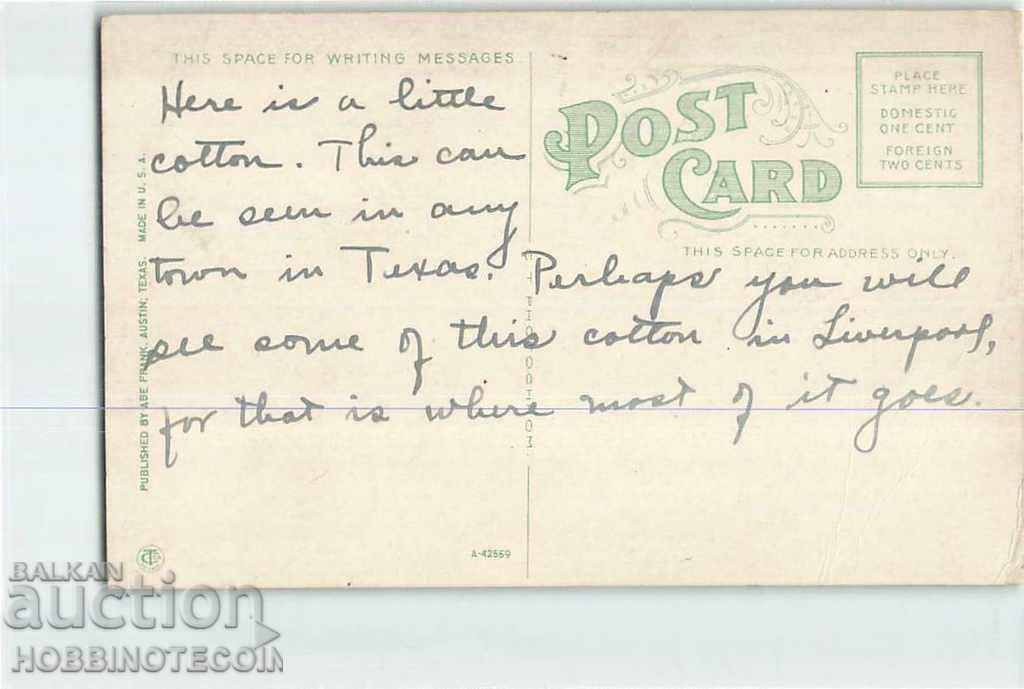 THIS SPACE FOR WRITING MESSAGES
Here is a little
cotton. This can
be seen in any
town in Texas. Perhaps you will
see some of this cotton in Liverpool,
for that is where most of it goes.
POST
CARD
THIS SPACE FOR ADDRESS ONLY.
PLACE
STAMP HERE
DOMESTIC
ONE CENT
FOREIGN
TWO CENTS
PUBLISHED BY ABE FRANK, AUSTIN, TEXAS. MADE IN U.S.A.
A-42559
BALKAN
auction
HOBBINOTECOIN